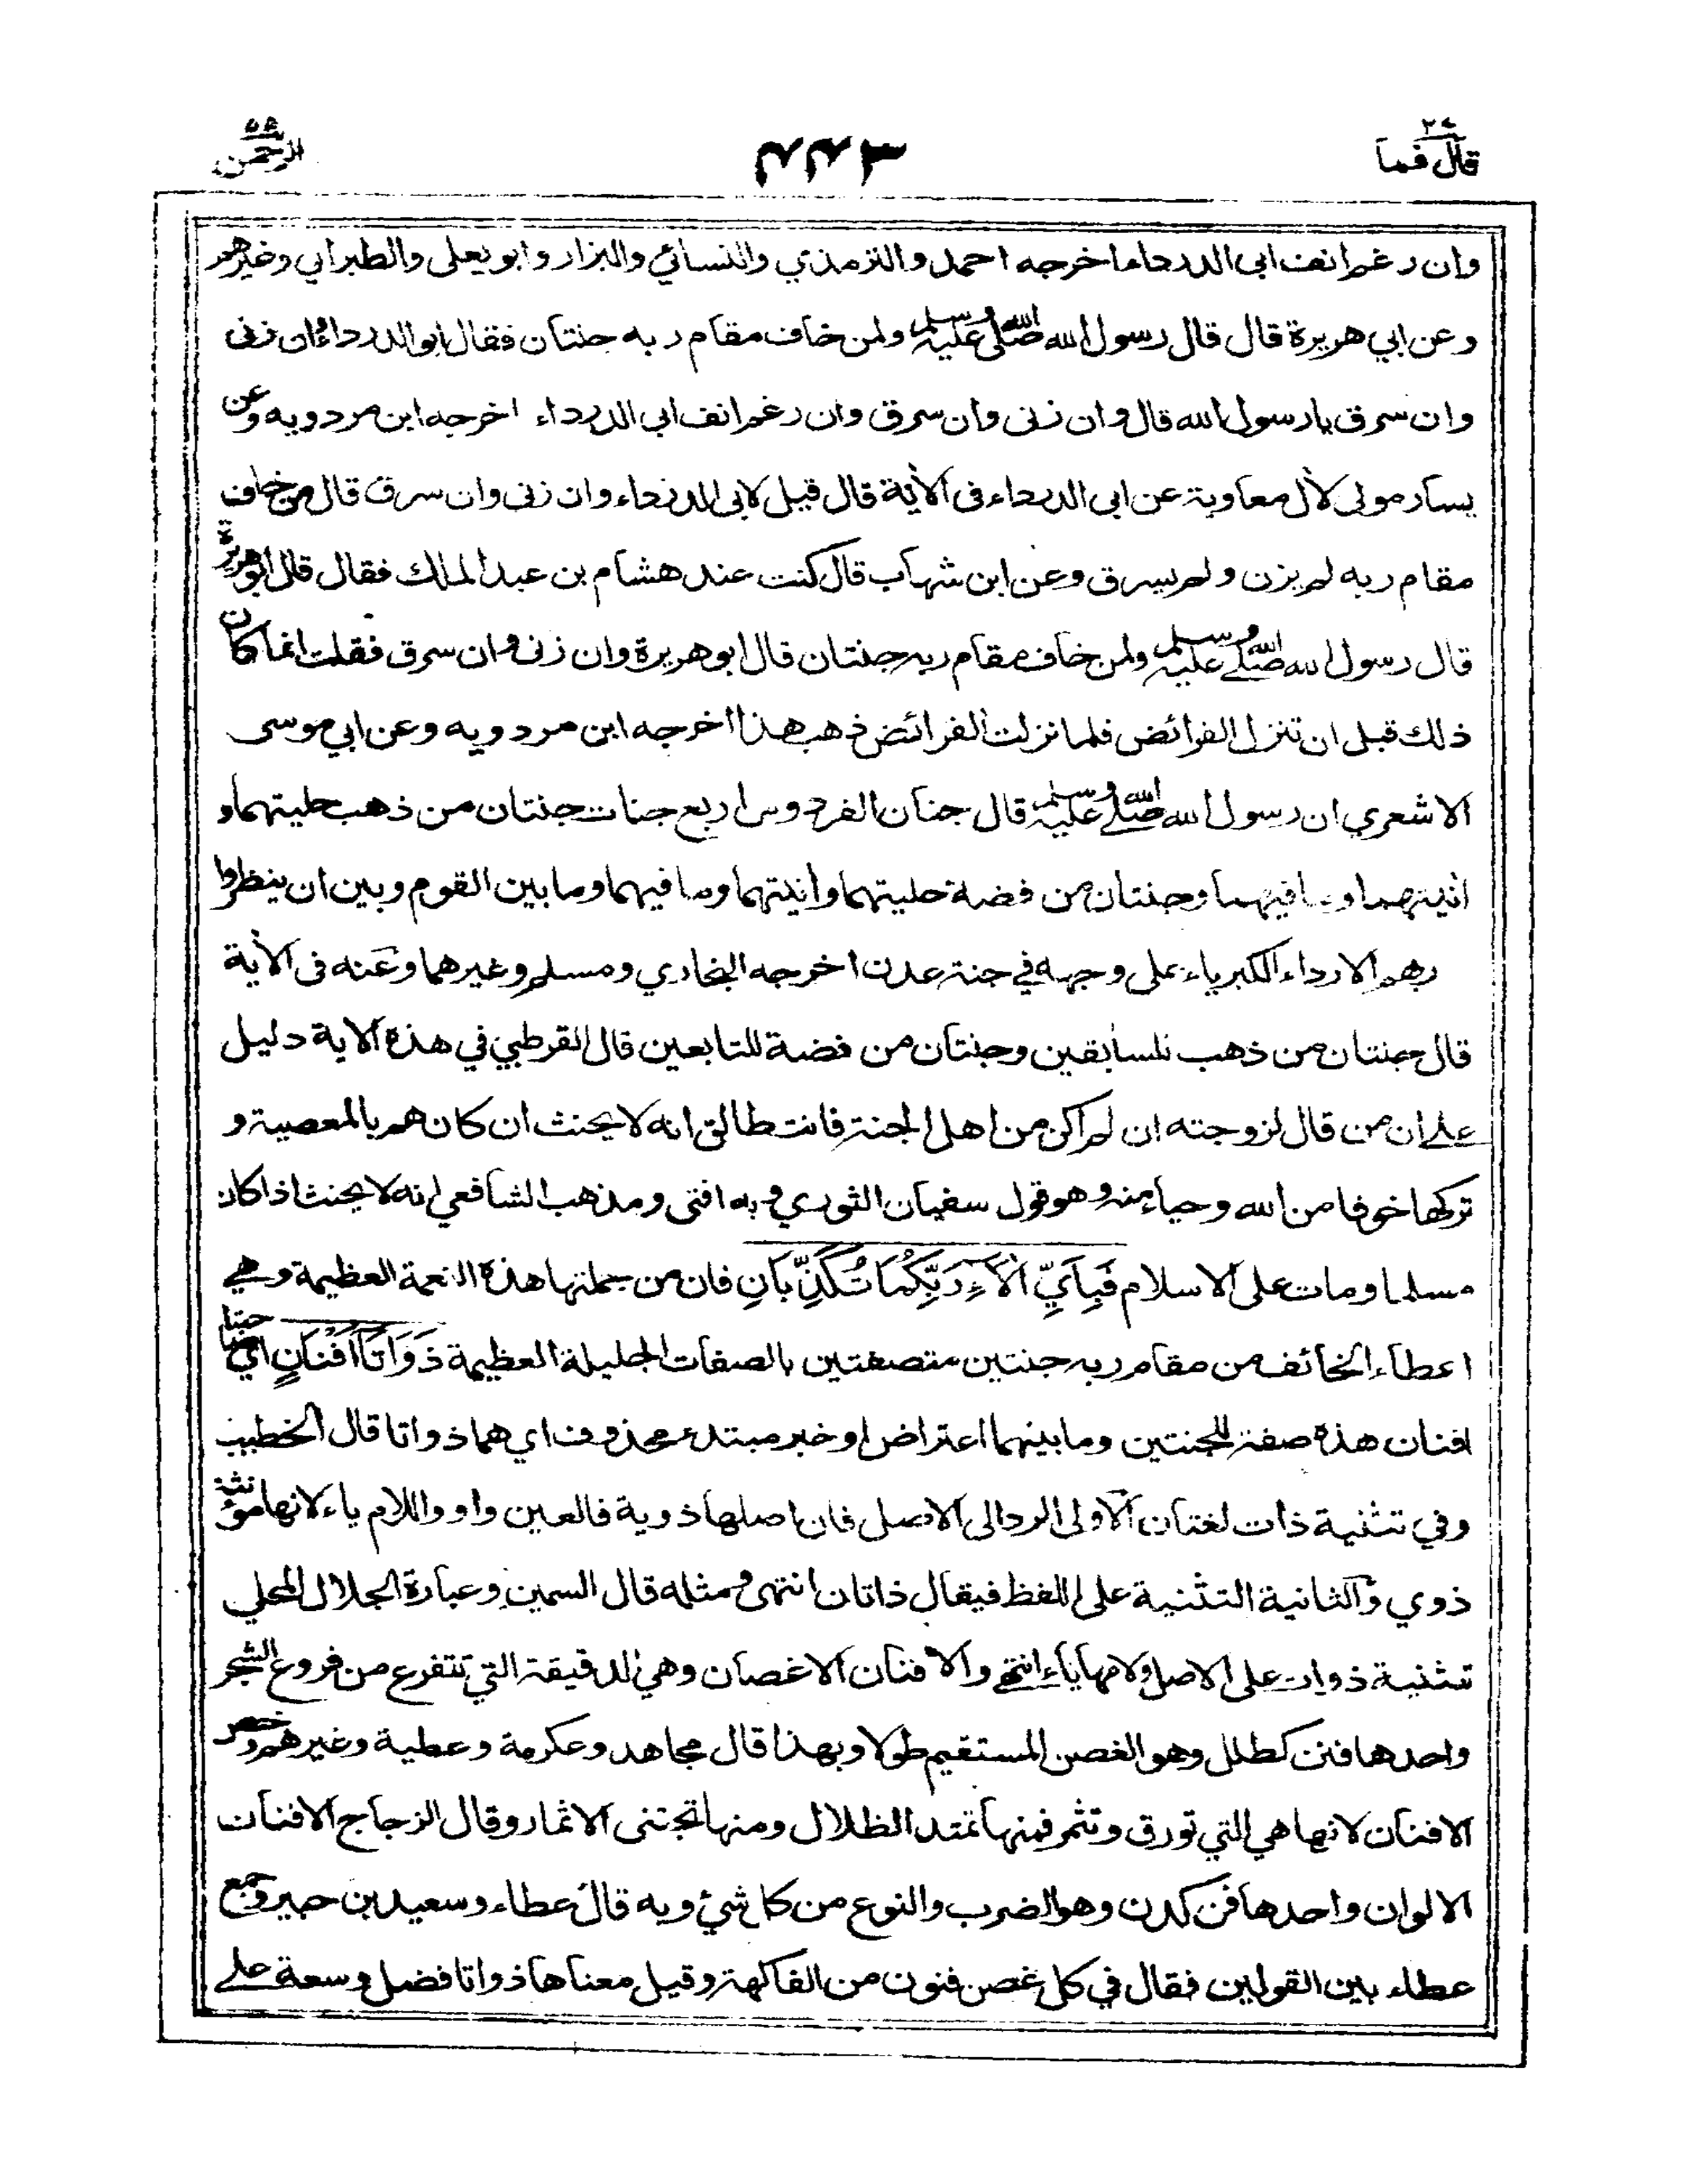 قال فما ٢٧
الرحمن ٥٥
وان رغم انف ابي الدرداء اخرجه احمد والترمذي والنسائي والبزار وابو يعلى والطبراني وغيرهم
وعن ابي هريرة قال قال رسول الله صلى الله عليه وسلم ولمن خاف مقام ربه جنتان فقال ابو الدرداء وان زنى
وان سرق يا رسول الله قال وان زنى وان سرق وان رغم انف ابي الدرداء اخرجه ابن مردويه وعن
يسار مولى لآل معاوية عن ابي الدرداء في الآية قال قيل لابي الدرداء وان زنى وان سرق قال من خاف
مقام ربه لم يزن ولم يسرق وعن ابن شهاب قال كنت عند هشام بن عبد الملك فقال قال ابو هريرة
قال رسول الله صلى الله عليه وسلم ولمن خاف مقام ربه جنتان قال ابو هريرة وان زنى وان سرق فقلت انما كان
ذلك قبل ان تنزل الفرائض فلما نزلت الفرائض ذهب هذا اخرجه ابن مردويه وعن ابي موسى
الاشعري ان رسول الله صلى الله عليه وسلم قال جنان الفردوس اربع جنات جنتان من ذهب حليتهما و
آنيتهما وما فيهما وجنتان من فضة حليتهما وآنيتهما وما فيهما وما بين القوم وبين ان ينظروا
ربهم الا رداء الكبرياء على وجهه في جنة عدن اخرجه البخاري ومسلم وغيرهما وعنه في الآية
قال جنتان من ذهب للسابقين وجنتان من فضة للتابعين قال القرطبي في هذه الآية دليل
على ان من قال لزوجته ان لم اكن من اهل الجنة فانت طالق انه لا يحنث ان كان هم بالمعصية و
تركها خوفا من الله وحياء منه وهو قول سفيان الثوري وبه افتى ومذهب الشافعي انه لا يحنث اذا كان
مسلما ومات على الاسلام فَبِاَيِّ اٰلَاۤءِ رَبِّكُمَا تُكَذِّبَانِ فان من جملتها هذه النعمة العظيمة وهي
اعطاء الخائف من مقام ربه جنتين متصفتين بالصفات الجليلة العظيمة ذَوَاتَآ اَفْنَانٍ اي جنتا
افنان هذه صفة للجنتين وما بينهما اعتراض او خبر مبتدء محذوف اي هما ذواتا قال الخطيب
وفي تثنية ذات لغتان الاولى الرد الى الاصل فان اصلها ذوية فالعين واو واللام ياء لانها مؤنثة
ذوي والثانية التثنية على اللفظ فيقال ذاتان انتهى ومثله قال السمين وعبارة الجلال المحلي
تثنية ذوات على الاصل ولامها ياء انتهى والافنان الاغصان وهي الدقيقة التي تتفرع من فروع الشجر
واحدها فنن كطلل وهو الغصن المستقيم طولا وبهذا قال مجاهد وعكرمة وعطية وغيرهم وخص
الافنان لانها هي التي تورق وتثمر فمنها تمتد الظلال ومنها تجتنى الاثمار وقال الزجاج الافنان
الالوان واحدها فن كدن وهو الضرب والنوع من كل شيء وبه قال عطاء وسعيد بن جبير وجمع
عطاء بين القولين فقال في كل غصن فنون من الفاكهة وقيل معناها ذواتا فضل وسعة على